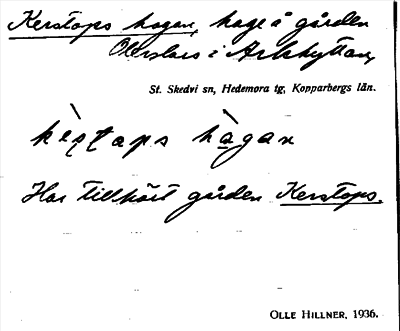 Kerstops hagan, hage å gården
Olerslars i Arkhyttan,
St. Skedvi sn, Hedemora tg, Kopparbergs län.
kè̀ʂʈaps hàgan
Har tillhört gården Kerstops.
OLLE HILLNER, 1936.